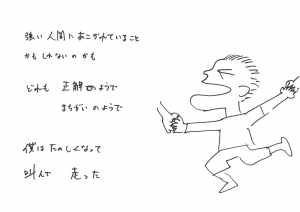 強い 人間に あこがれていること
かも しれないのかも
どれも 正解のようで
まちがい のようで
僕は たのしくなって
叫んで 走った